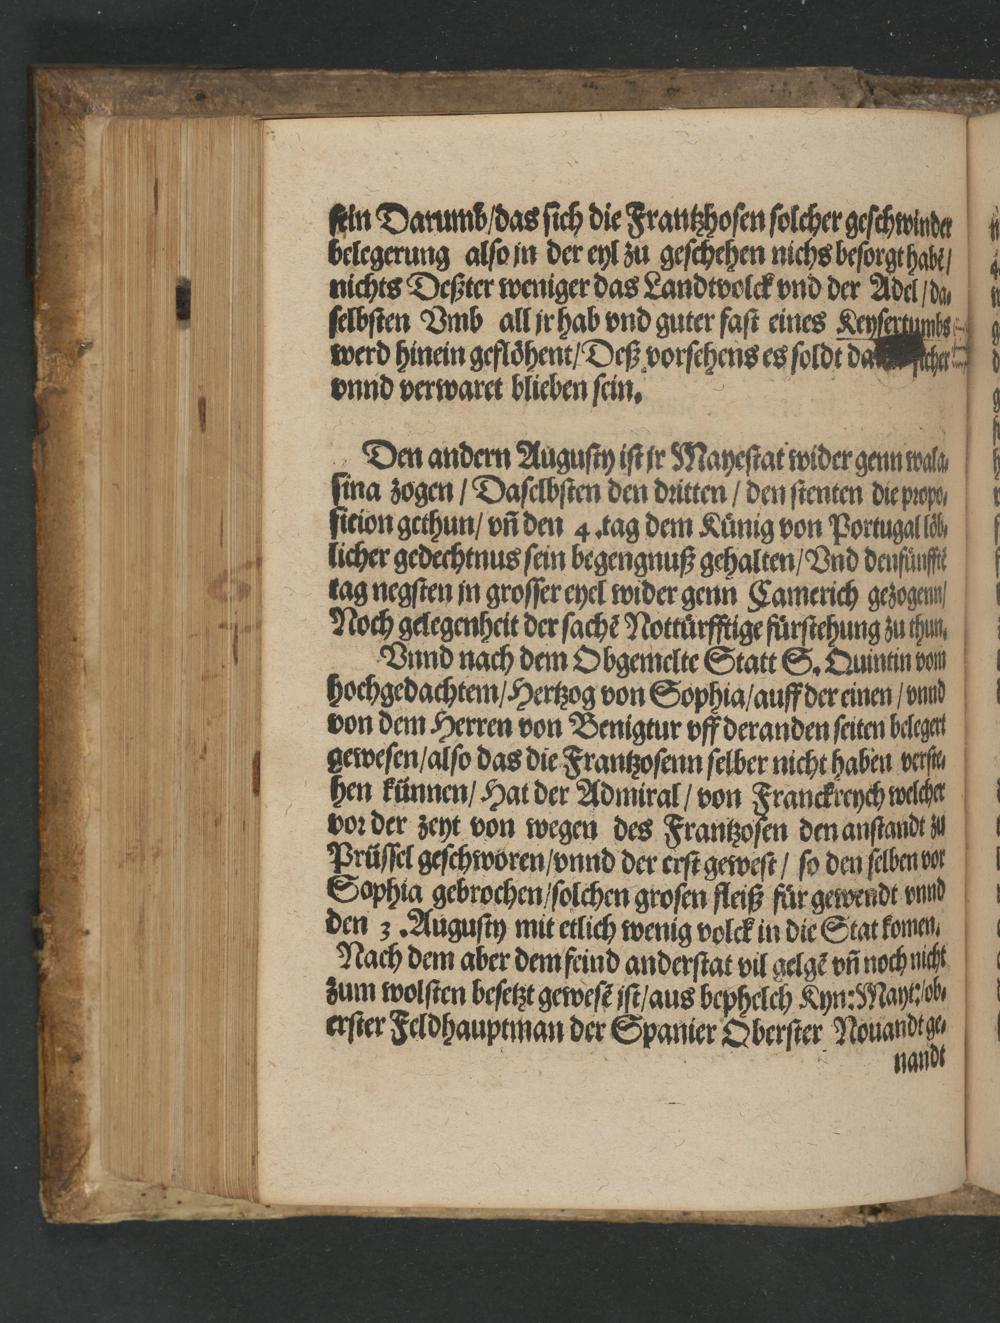 sein Darumb/das sich die Frantzhosen solcher geschwinder
belegerung also in der eyl zu geschehen nichs besorgt habē/
nichts Deßter weniger das Landtvolck vnd der Adel/da-
selbsten Vmb all jr hab vnd guter fast eines Keysertumbs
werd hinein geflöhent/Deß vorsehens es soldt sicher
vnnd verwaret blieben sein.
Den andern Augusty ist jr Mayestat wider genn wala-
sina zogen/Daselbsten den dritten/den stenten die propo-
sition gethun/vñ den 4.tag dem Künig von Portugal löb-
licher gedechtnus sein begengnuß gehalten/Vnd denfünfftē
tag negsten in grosser eyel wider genn Camerich gezogenn/
Noch gelegenheit der sachē Nottürfftige fürstehung zu thun.
Vnnd nach dem Obgemelte Statt S. Quintin vom
hochgedachtem/Hertzog von Sophia/auff der einen/vnnd
von dem Herren von Benigtur vff deranden seiten belegert
gewesen/also das die Frantzosenn selber nicht haben verste-
hen künnen/Hat der Admiral/von Franckreych welcher
vor der zeyt von wegen des Frantzosen den anstandt zu
Prüssel geschworen/vnnd der erst gewest/so den selben vor
Sophia gebrochen/solchen grosen fleiß für gewendt vnnd
den 3.Augusty mit etlich wenig volck in die Stat komen.
Nach dem aber dem feind anderstat vil gelgē vñ noch nicht
zum wolsten besetzt gewesē ist/aus bephelch Kyn:Mayt:/ob-
erster Feldhauptman der Spanier Oberster Nouandt ge-
nandt